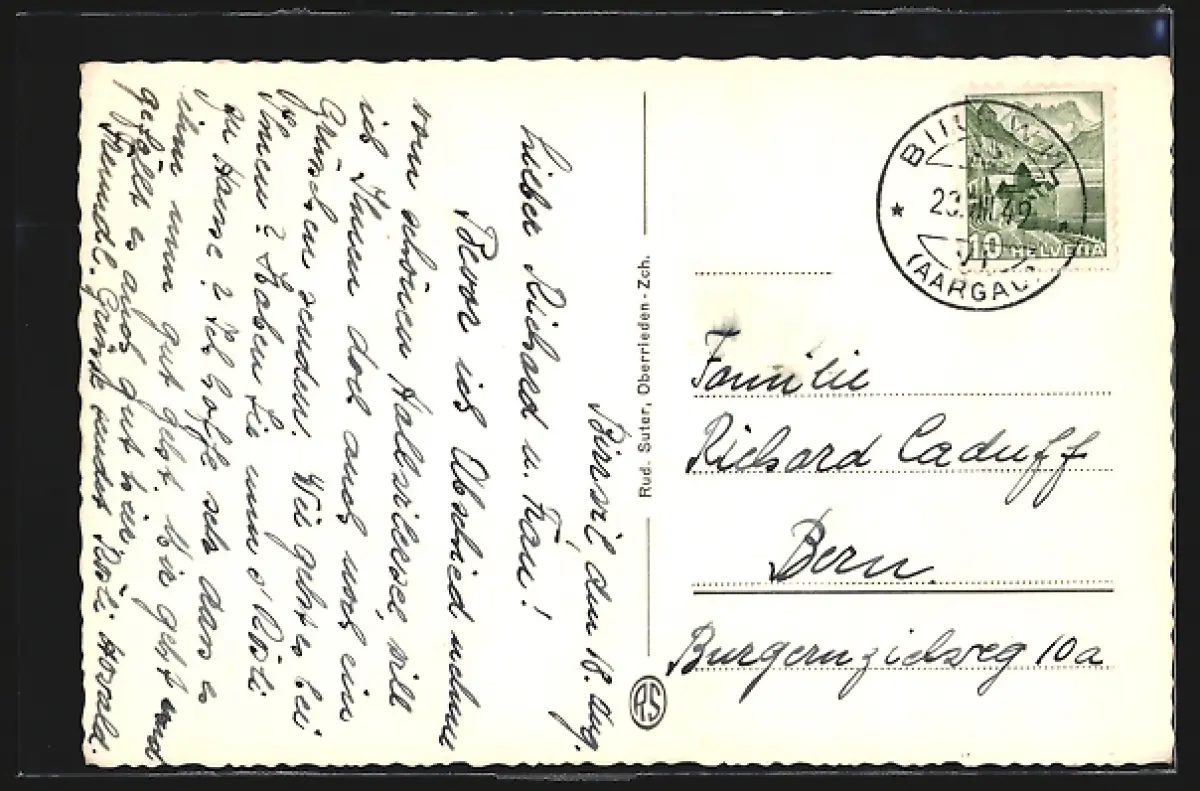 Birrwil, den 18. Aug.
Lieber Richard u. Frau!
Bevor ich Abschied nehme
vom schönen Hallwilersee, will
ich Ihnen doch auch noch ein
Grüschen senden. Wie geht es bei
Ihnen? Haben Sie nun s'Rösli
zu Hause? Ich hoffe sehr dass es
ihm nun gut geht. Mir geht und
gefällt es auch gut hier.
Freundl. Grüsse sendet Rösli
Rud. Suter, Oberrieden-Zch.
RS
BIRRWIL
20.VIII.49
(AARGAU)
10 HELVETIA
Familie
Richard Caduff
Bern.
Burgernzielweg 10a